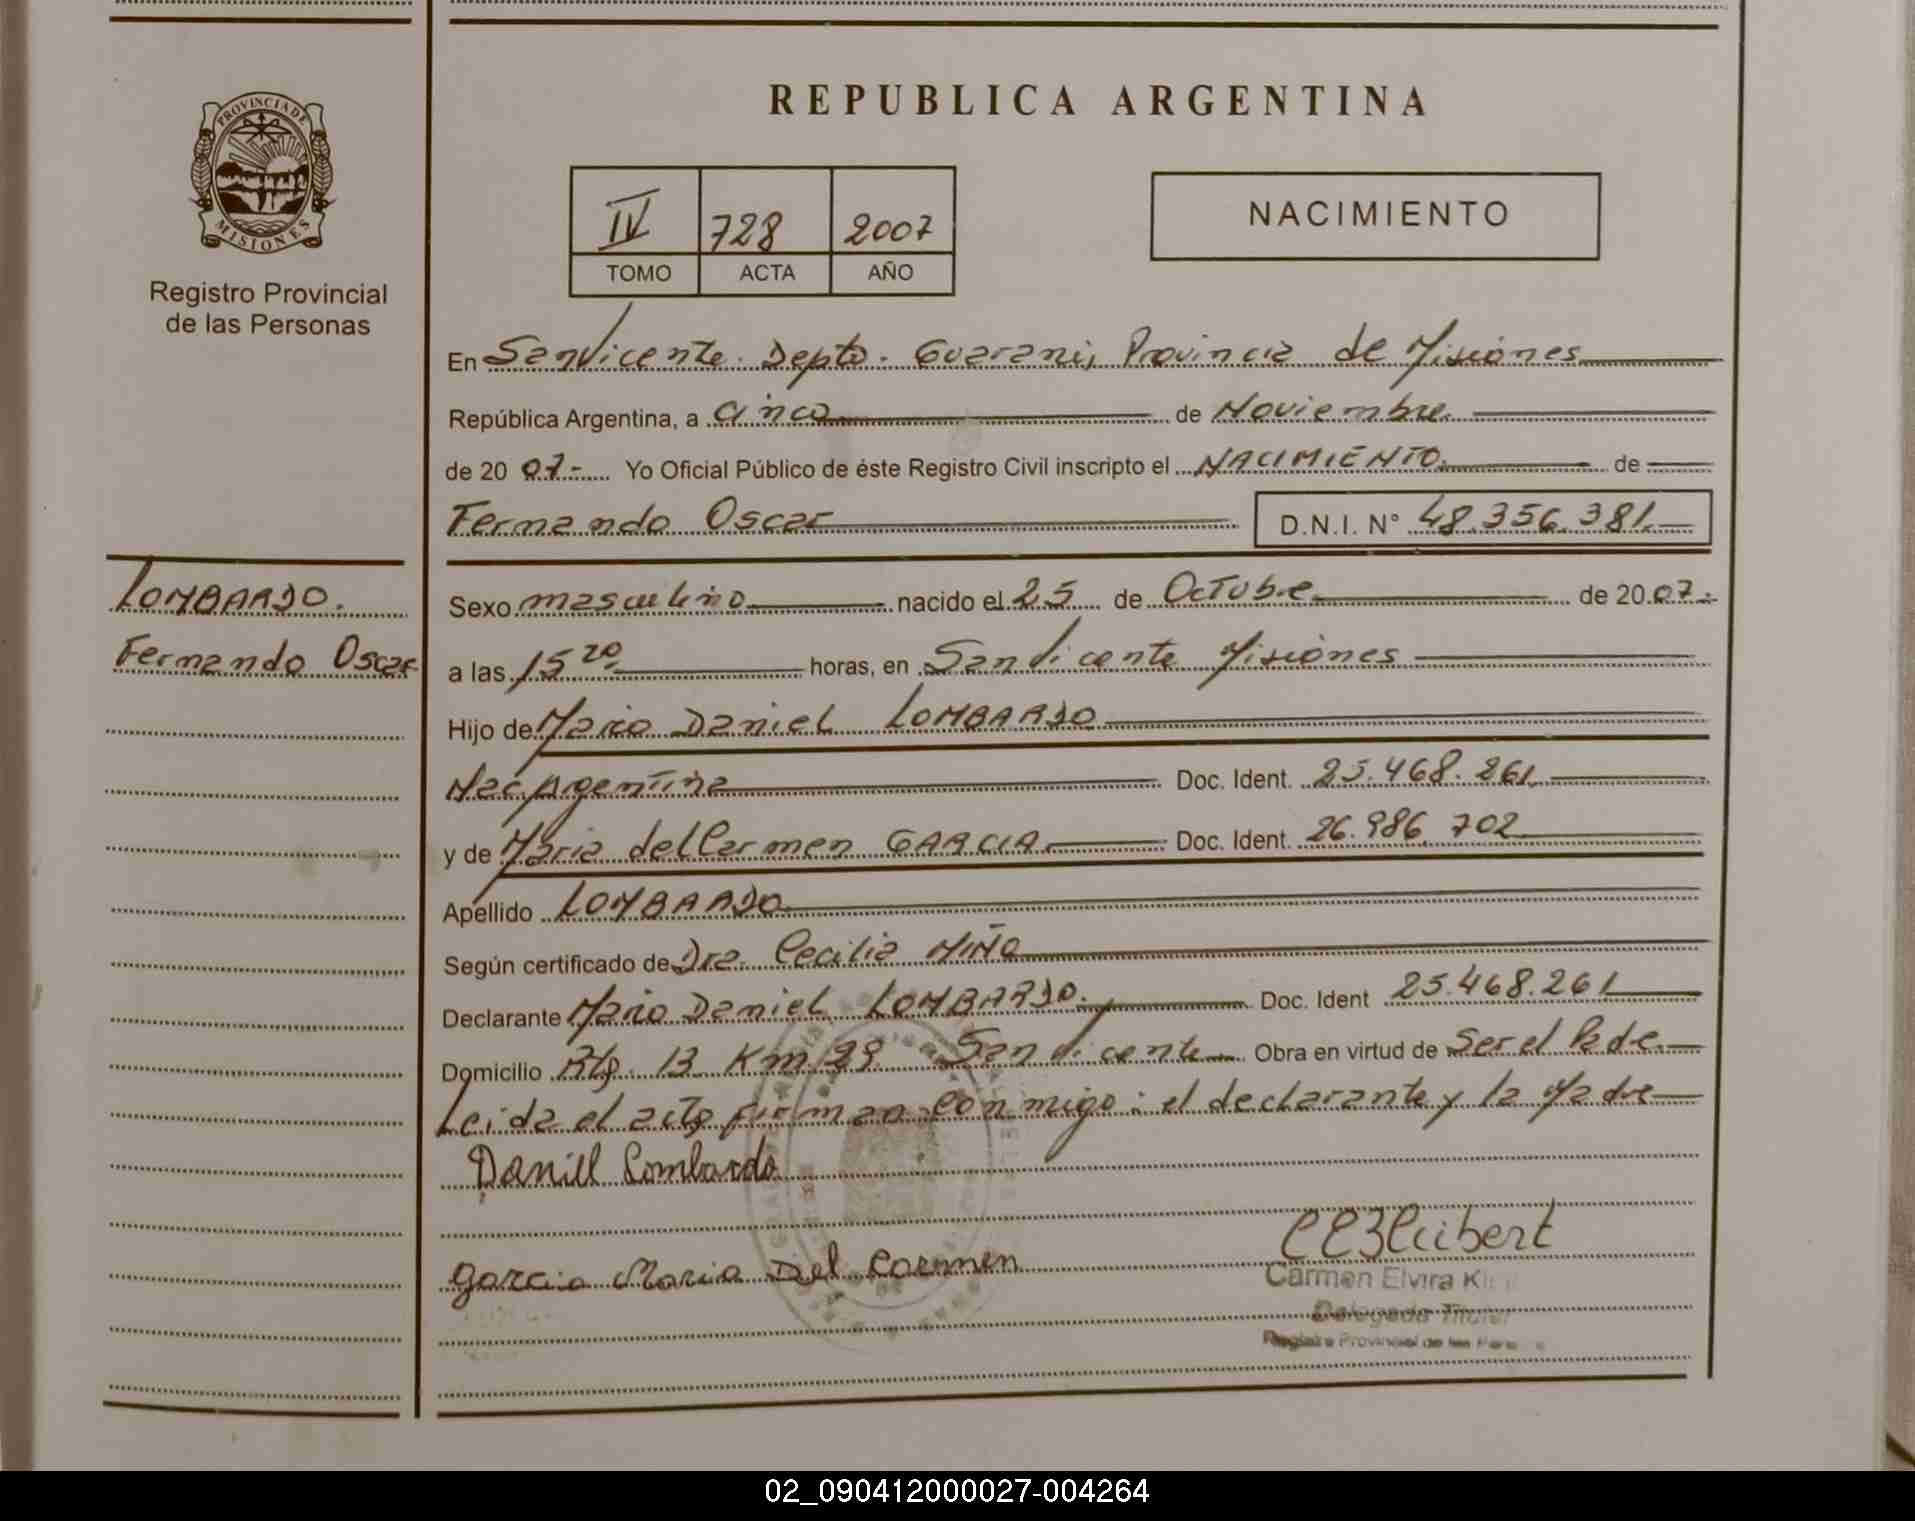 PROVINCIA DE
MISIONES
Registro Provincial
de las Personas
LOMBARDO.
Fernando Oscar
REPUBLICA ARGENTINA
IV 728 2007
TOMO ACTA AÑO
NACIMIENTO
En San Vicente Depto. Guarani, Provincia de Misiones
República Argentina, a cinco de Noviembre
de 20 07.- Yo Oficial Público de éste Registro Civil inscripto el NACIMIENTO de
Fernando Oscar D.N.I. N° 48.356.381.
Sexo masculino nacido el 25 de Octubre de 20 07.-
a las 15 20 horas, en San Vicente Misiones
Hijo de Mario Daniel LOMBARDO
Nac. Argentina Doc. Ident. 25.468.261
y de Maria del Carmen GARCIA Doc. Ident. 26.986.702
Apellido LOMBARDO
Según certificado de Dra. Cecilia MIÑO
Declarante Mario Daniel LOMBARDO. Doc. Ident 25.468.261
Domicilio Km. San Vicente Obra en virtud de Ser el Padre
Leida el acta firman conmigo: el declarante y la Madre
Daniel Lombardo
Garcia Maria Del Carmen
Carmen Elvira
Delegada Titular
Registro Provincial de las
02_090412000027-004264